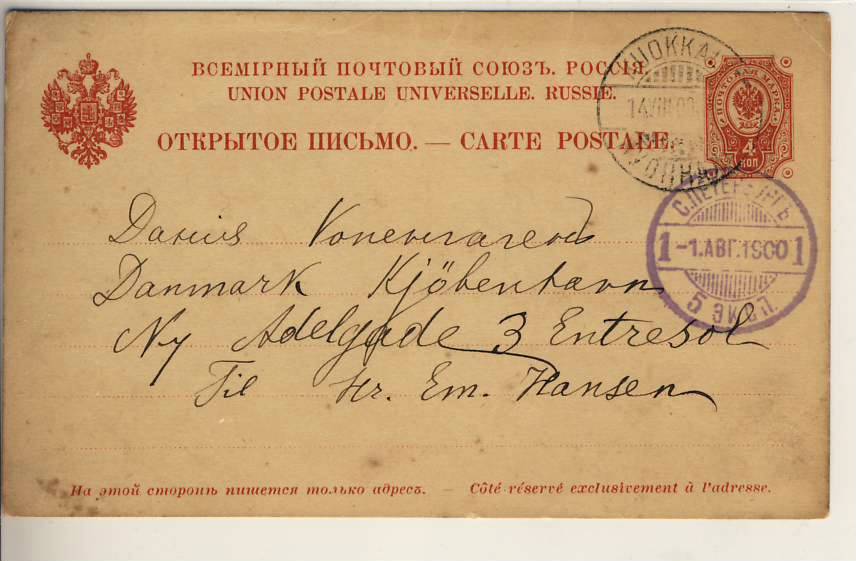 ВСЕМІРНЫЙ ПОЧТОВЫЙ СОЮЗЪ. РОССІЯ
UNION POSTALE UNIVERSELLE. RUSSIE.
ОТКРЫТОЕ ПИСЬМО. — CARTE POSTALE.
ПОЧТОВАЯ МАРКА
4
КОП
14.VIII.00
С.ПЕТЕРБУРГЪ
1 -1.АВГ.1900 1
5 ЭКСП.
Danmark Kjöbenhavn
Ny Adelgade 3 Entresol
Til Hr. Em. Hansen
На этой сторонѣ пишется только адресъ. — Côté réservé exclusivement à l'adresse.